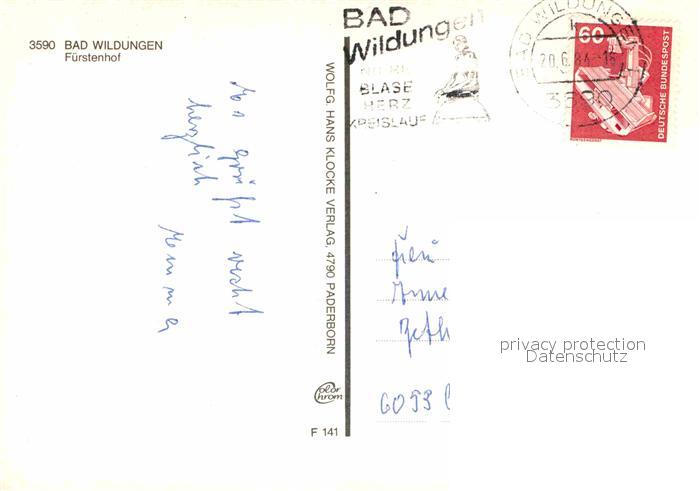 3590 BAD WILDUNGEN
Fürstenhof
Es grüßt recht
herzlich
WOLFG. HANS KLOCKE VERLAG, 4790 PADERBORN
Color
Chrom
F 141
BAD
Wildungen
NIERE
BLASE
HERZ
KREISLAUF
BAD WILDUNGEN
20.6.84-16
3590
60
DEUTSCHE BUNDESPOST
RÖNTGENGERÄT
Anne
6093
privacy protection
Datenschutz